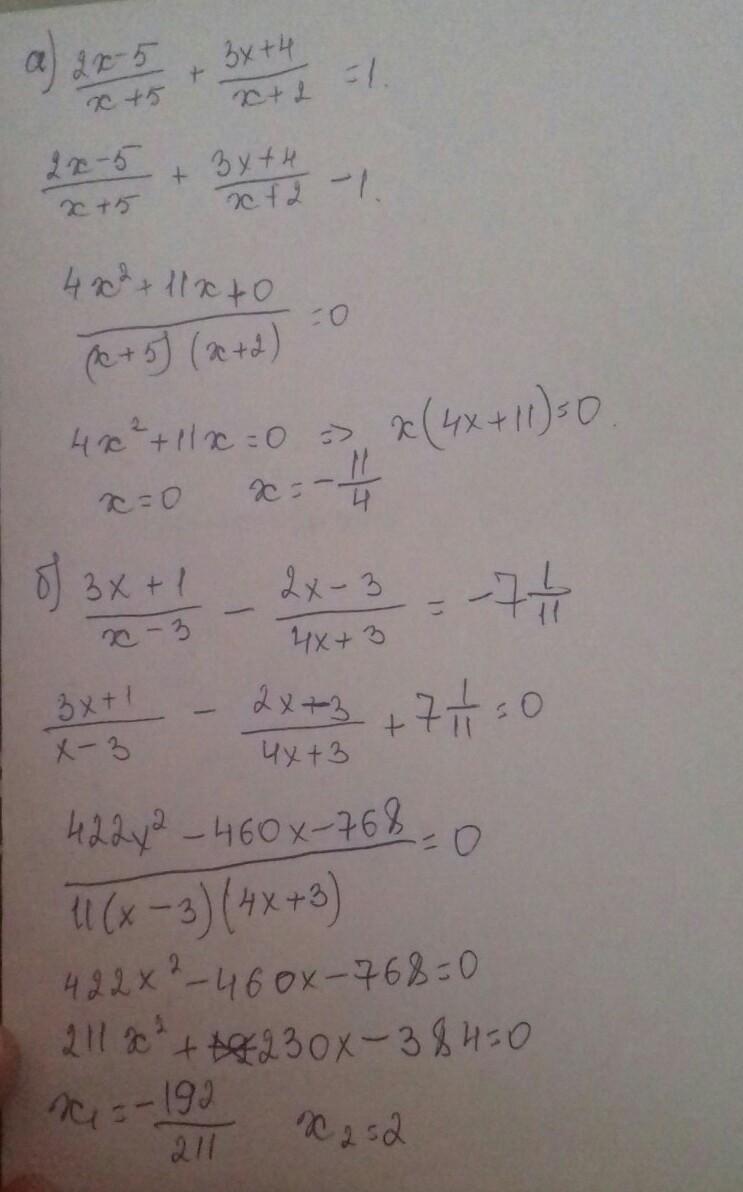 а) (2x-5)/(x+5) + (3x+4)/(x+2) =1.
(2x-5)/(x+5) + (3x+4)/(x+2) -1.
(4x²+11x+0)/((x+5)(x+2)) =0
4x²+11x=0 => x(4x+11)=0.
x=0 x=-11/4
б) (3x+1)/(x-3) - (2x-3)/(4x+3) = -7 1/11
(3x+1)/(x-3) - (2x-3)/(4x+3) +7 1/11 =0
(422x²-460x-768)/(11(x-3)(4x+3)) =0
422x²-460x-768=0
211x²+230x-384=0
x₁=-192/211 x₂=2